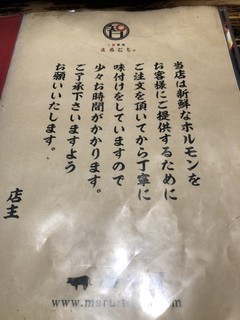 まるにし。
当店は新鮮なホルモンを
お客様にご提供するために
ご注文を頂いてから丁寧に
味付けをしていますので
少々お時間がかかります。
ご了承下さいますよう
お願いいたします。
店主